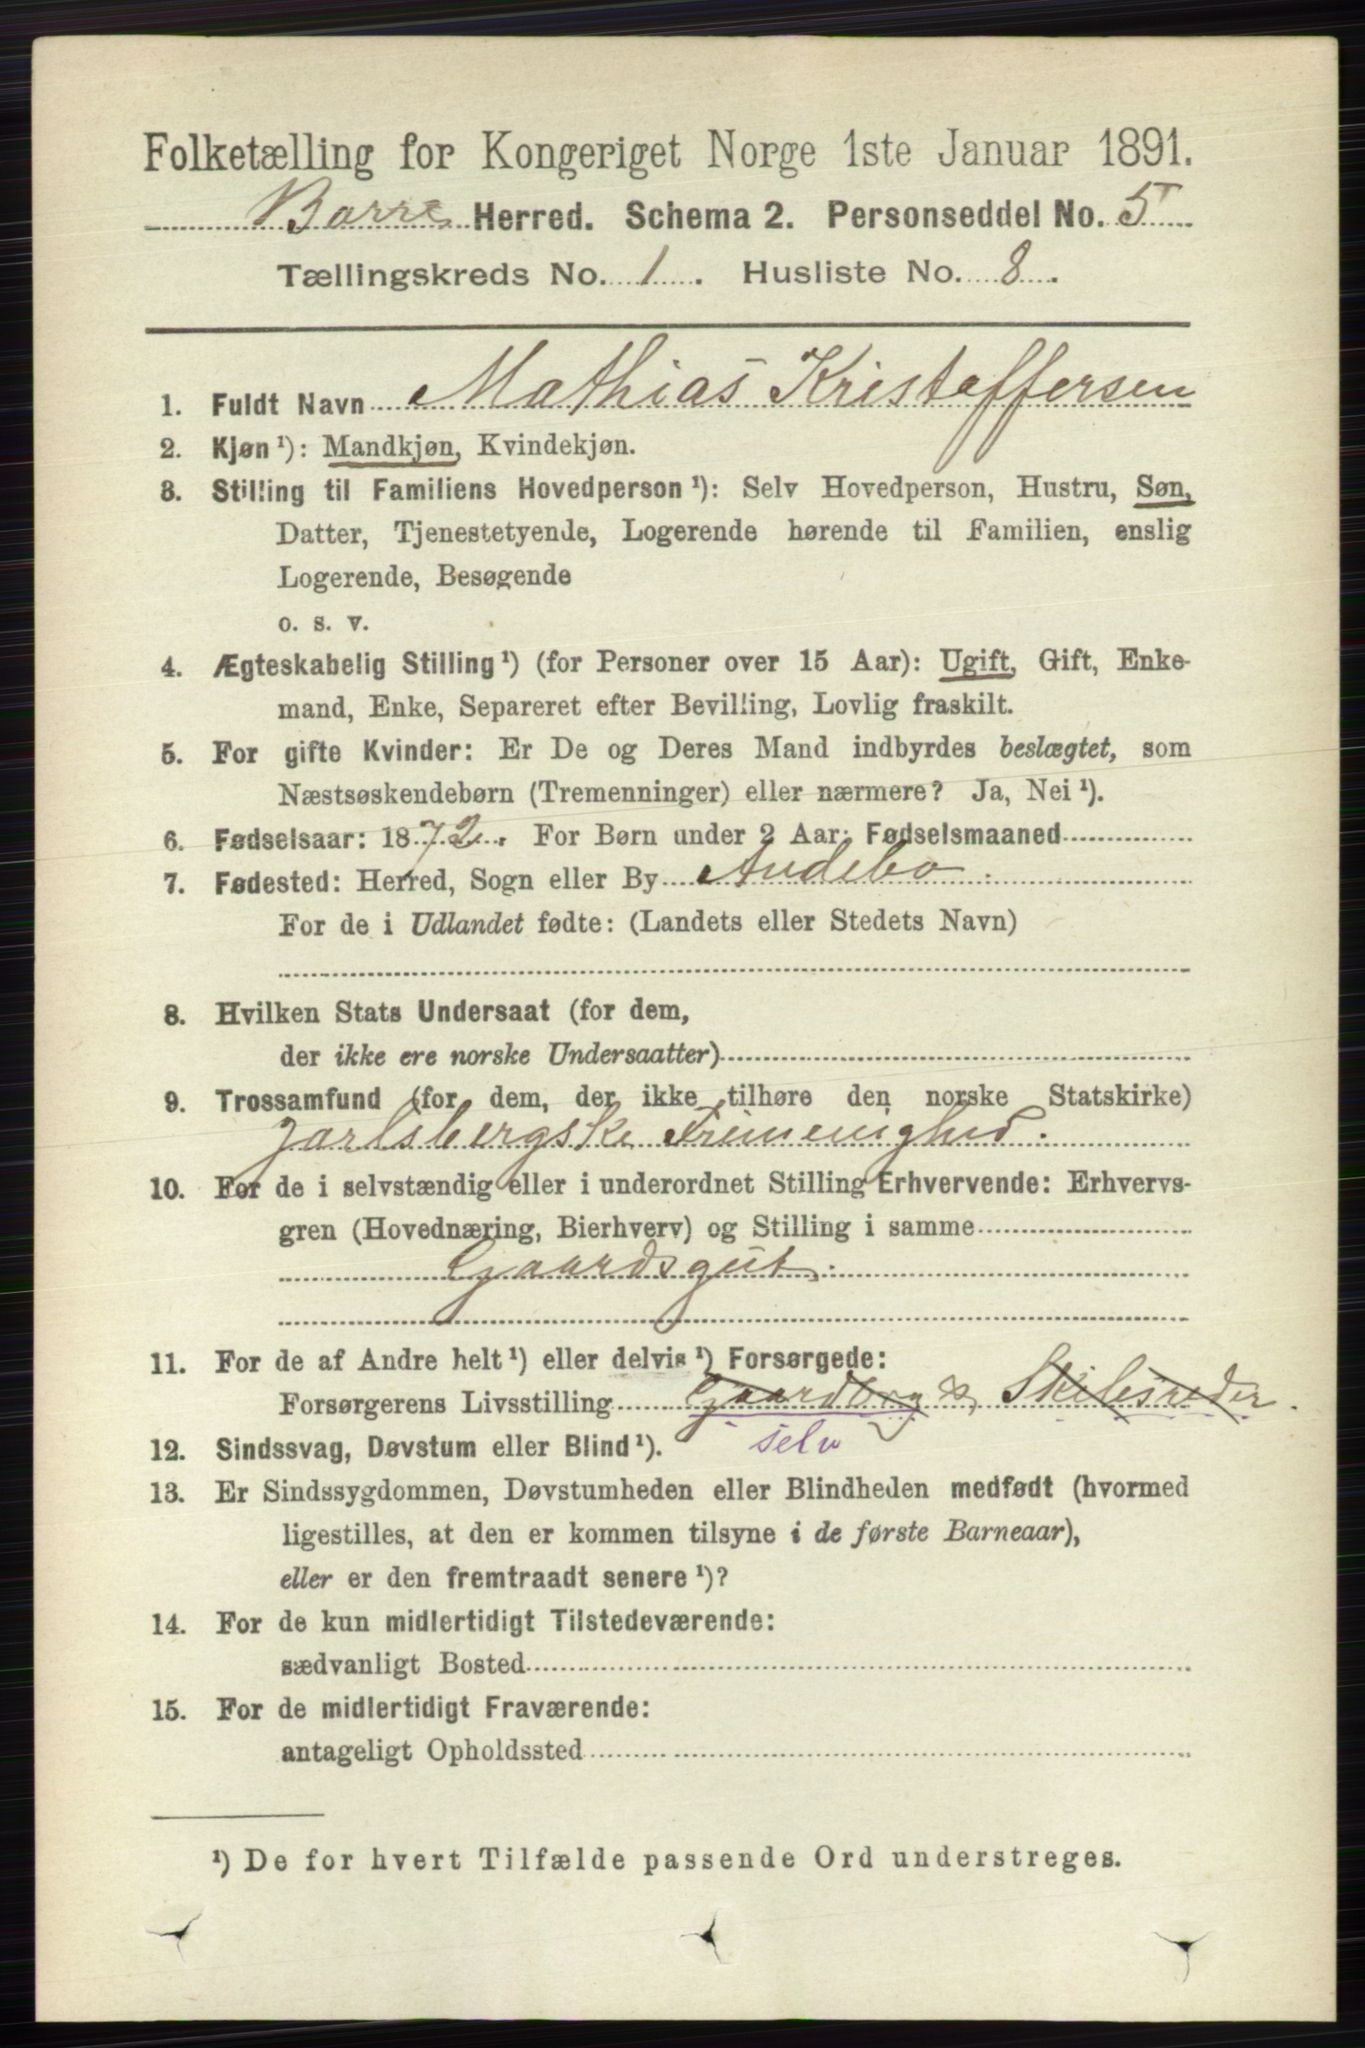 Folketælling for Kongeriget Norge 1ste Januar 1891.
Borre Herred. Schema 2. Personseddel No. 5
Tællingskreds No. 1. Husliste No. 8.
1. Fuldt Navn Mathias Kristoffersen
2. Kjøn¹): Mandkjøn, Kvindekjøn.
3. Stilling til Familiens Hovedperson¹): Selv Hovedperson, Hustru, Søn,
Datter, Tjenestetyende, Logerende hørende til Familien, enslig
Logerende, Besøgende
o. s. v.
4. Ægteskabelig Stilling¹) (for Personer over 15 Aar): Ugift, Gift, Enke-
mand, Enke, Separeret efter Bevilling, Lovlig fraskilt.
5. For gifte Kvinder: Er De og Deres Mand indbyrdes beslægtet, som
Næstsøskendebørn (Tremenninger) eller nærmere? Ja, Nei¹).
6. Fødselsaar: 1872. For Børn under 2 Aar: Fødselsmaaned
7. Fødested: Herred, Sogn eller By Andebo.
For de i Udlandet fødte: (Landets eller Stedets Navn)
8. Hvilken Stats Undersaat (for dem,
der ikke ere norske Undersaatter)
9. Trossamfund (for dem, der ikke tilhøre den norske Statskirke)
Jarlsbergske Frimenighed.
10. For de i selvstændig eller i underordnet Stilling Erhvervende: Erhvervs-
gren (Hovednæring, Bierhverv) og Stilling i samme
Gaardsgut.
11. For de af Andre helt¹) eller delvis¹) Forsørgede:
Forsørgerens Livsstilling Gaardbrug & Skibsreder.
selv
12. Sindssvag, Døvstum eller Blind¹).
13. Er Sindssygdommen, Døvstumheden eller Blindheden medfødt (hvormed
ligestilles, at den er kommen tilsyne i de første Barneaar),
eller er den fremtraadt senere¹)?
14. For de kun midlertidigt Tilstedeværende:
sædvanligt Bosted
15. For de midlertidigt Fraværende:
antageligt Opholdssted
¹) De for hvert Tilfælde passende Ord understreges.